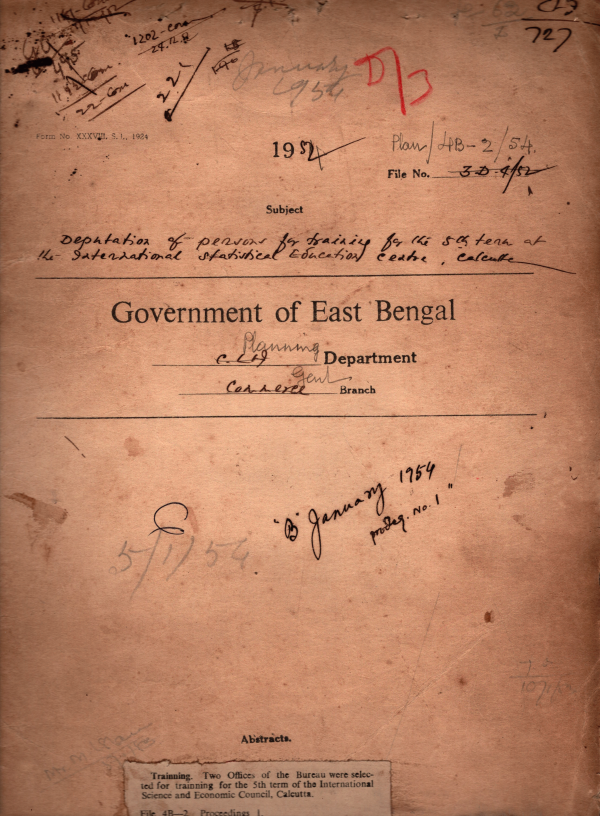 "1202-com
24.12.
22
January
1954
D/3
727
Form No. XXXVIII, S.I., 1924
1952
Plan/4B-2/54.
File No. 3-D-4/52
Subject
Deputation of persons for training for the 5th term at
the International Statistical Education Centre, Calcutta
Government of East Bengal
Planning
C. L & I Department
Genl
Commerce Branch
"B" January 1954
proceg. No. 1"
5/1/54
Abstracts.
Trainning. Two Offices of the Bureau were selec-
ted for trainning for the 5th term of the International
Science and Economic Council, Calcutta.
File 4B—2 Proceedings 1.